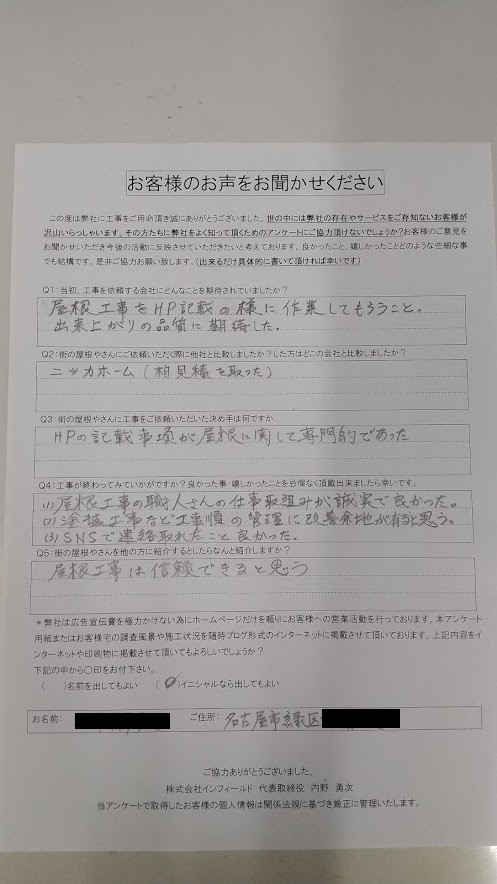 お客様のお声をお聞かせください
この度は弊社に工事をご用命頂き誠にありがとうございました。世の中には弊社の存在やサービスをご存知ないお客様が
沢山いらっしゃいます。その方たちに弊社をよく知って頂くためのアンケートにご協力頂けないでしょうか?お客様のご意見を
お聞かせいただき今後の活動に反映させていただきたいと考えております。良かったこと、嬉しかったことどのような些細な事
でも結構です。是非ご協力お願い致します。(出来るだけ具体的に書いて頂ければ幸いです)
Q1:当初、工事を依頼する会社にどんなことを期待されていましたか?
屋根工事をHP記載の様に作業してもらうこと。
出来上がりの品質に期待した。
Q2:街の屋根やさんにご依頼いただく際に他社と比較しましたか?した方はどこの会社と比較しましたか?
ニッカホーム(相見積を取った)
Q3:街の屋根やさんに工事をご依頼いただいた決め手は何ですか
HPの記載事項が屋根に関して専門的であった
Q4:工事が終わってみていかがですか?良かった事・嬉しかったことを忌憚なく頂戴出来ましたら幸いです。
(1)屋根工事の職人さんの仕事取組みが誠実で良かった。
(2)塗装工事など工事順の管理に改善余地が有ると思う。
(3)SNSで連絡取れたこと良かった。
Q5:街の屋根やさんを他の方に紹介するとしたらなんと紹介しますか?
屋根工事は信頼できると思う
*弊社は広告宣伝費を極力かけない為にホームページだけを頼りにお客様への営業活動を行っております。本アンケート
用紙またはお客様宅の調査風景や施工状況を随時ブログ形式のインターネットに掲載させて頂いております。上記内容をイ
ンターネットや印刷物に掲載させて頂いてもよろしいでしょうか?
下記の中から〇印をお付下さい。
( )名前を出してもよい (〇)イニシャルなら出してもよい
お名前: ご住所: 名古屋市緑区
ご協力ありがとうございました。
株式会社インフィールド 代表取締役 内野 勇次
当アンケートで取得したお客様の個人情報は関係法規に基づき厳正に管理いたします。